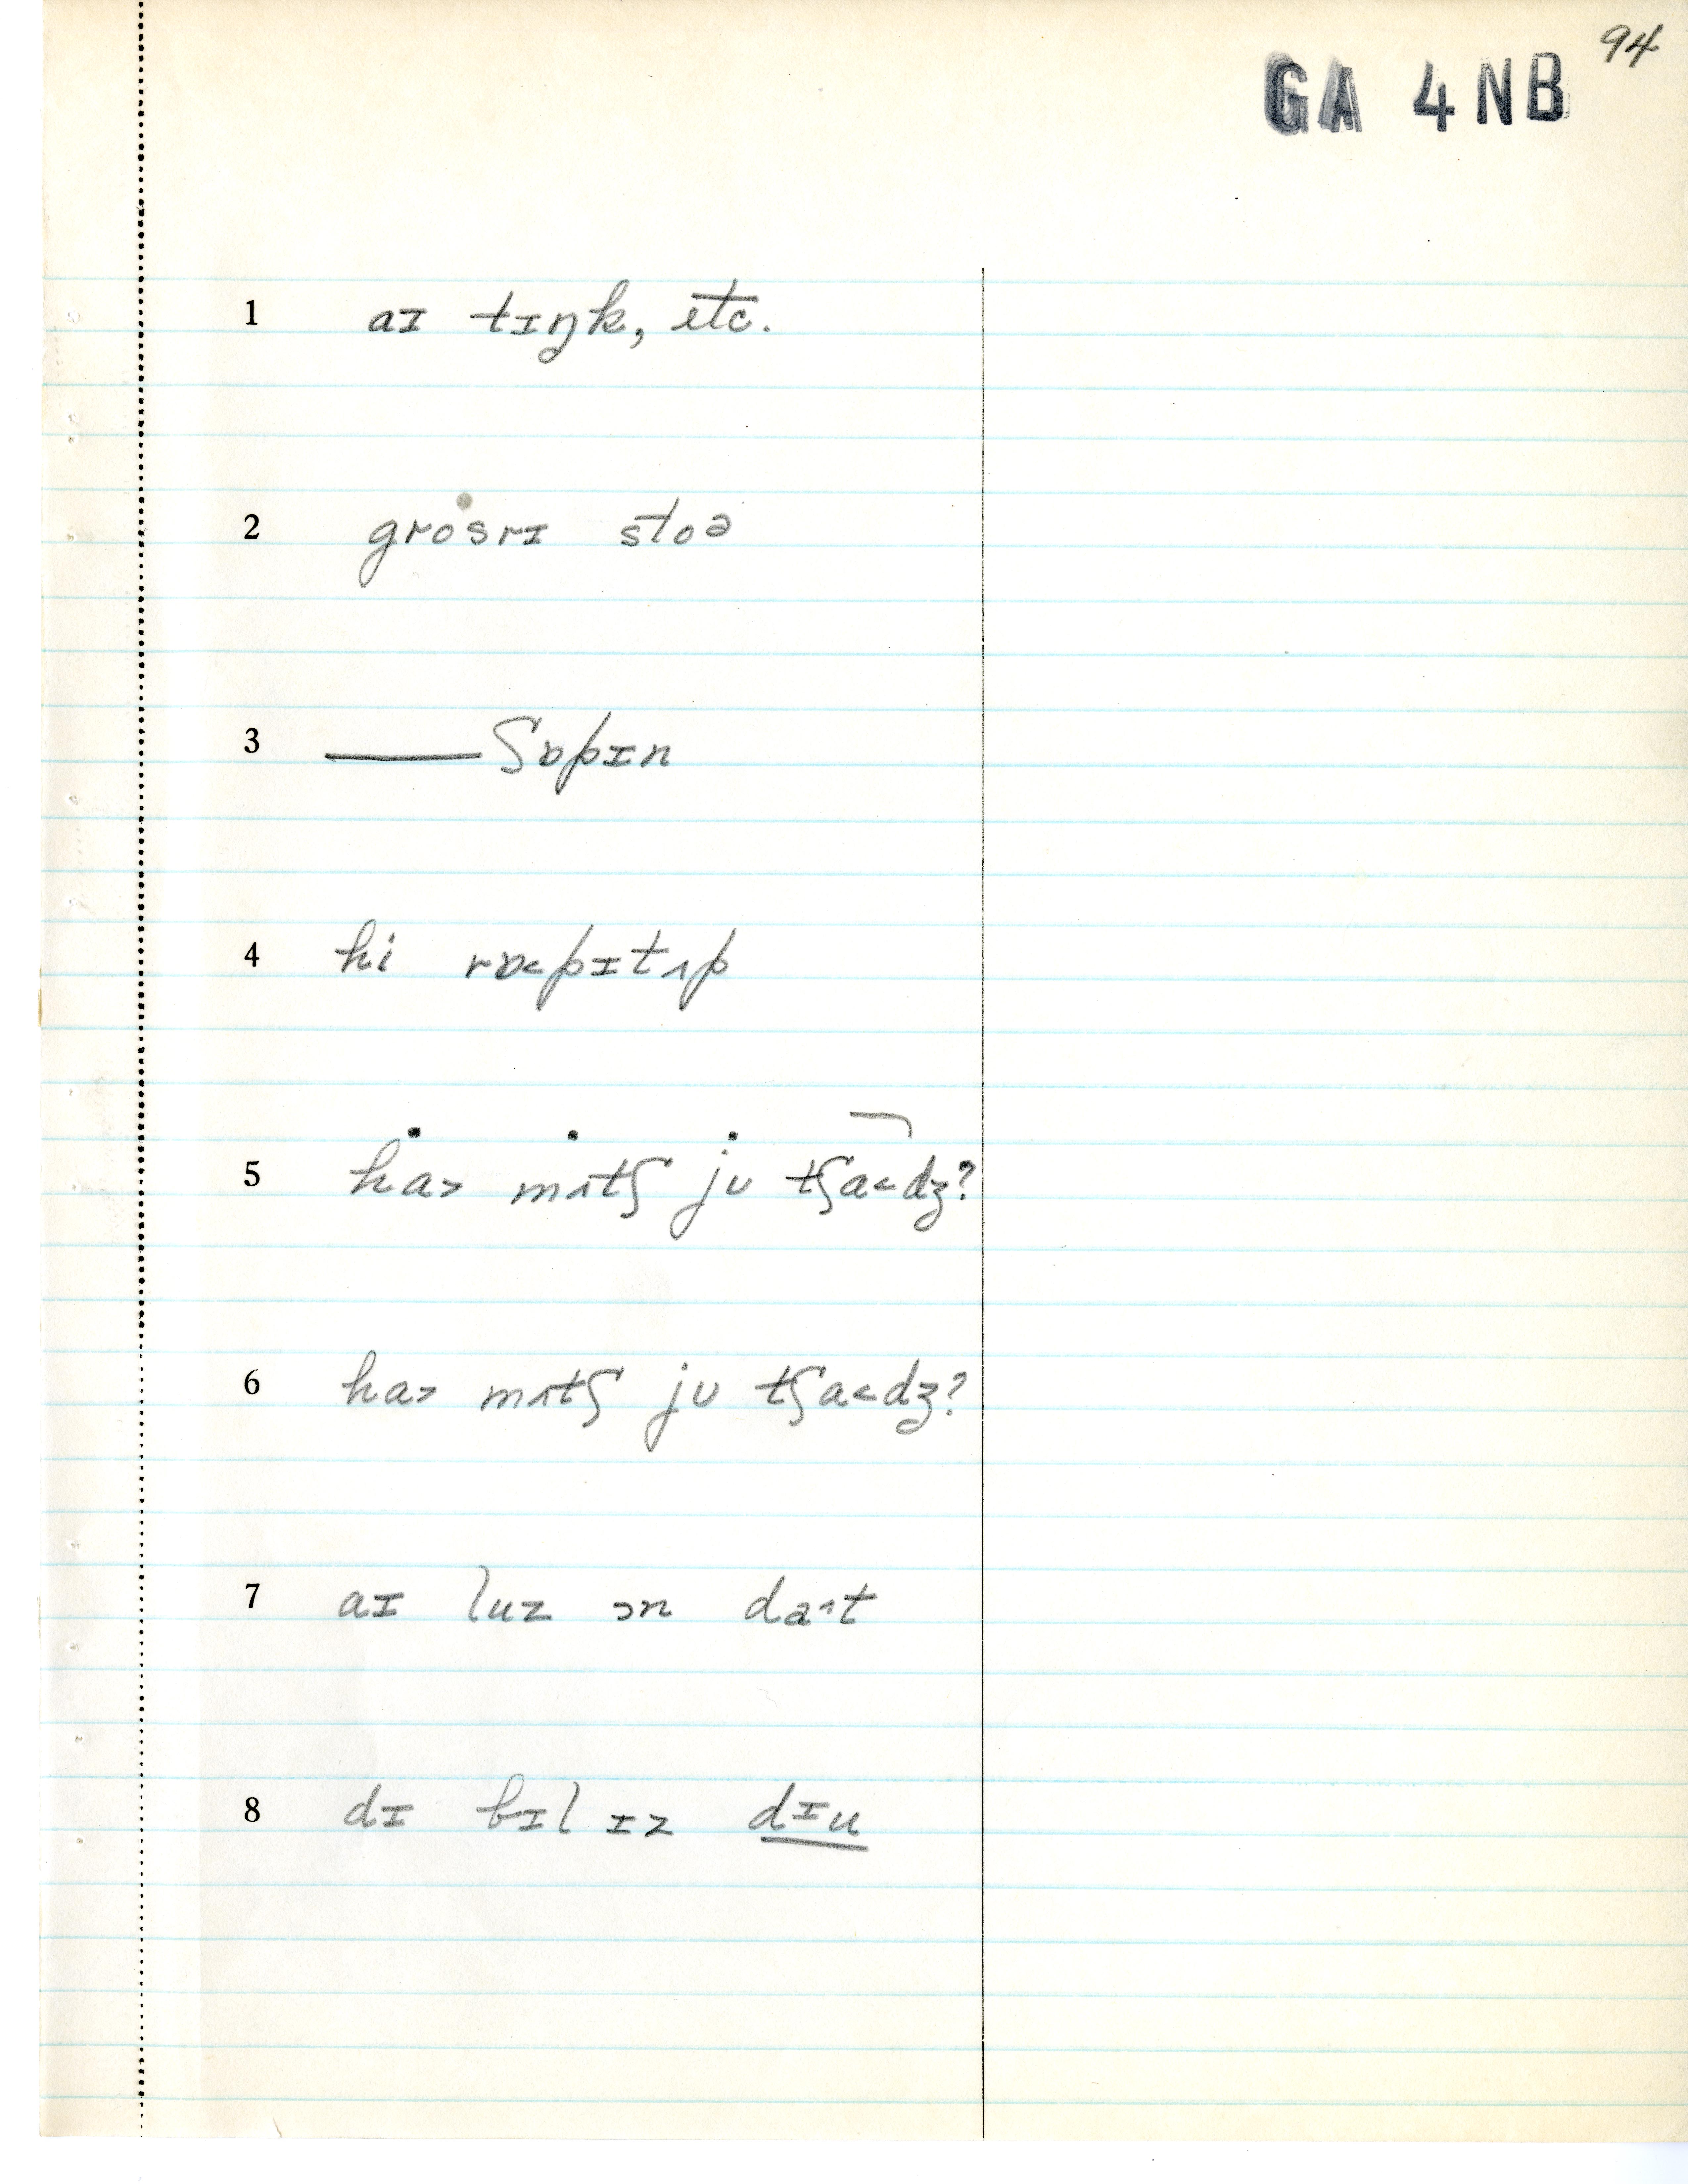 94
GA 4NB
1 aɪ tɪŋk, etc.
2 grosrɪ stoə
3 ——— ʃɒpɪn
4 hi ræpɪt ʌp
5 ha> mʌtʃ jʊ tʃa<dʒ?
6 ha> mʌtʃ jʊ tʃa<dʒ?
7 aɪ luz ɔn da^t
8 dɪ bɪl ɪz dɪu